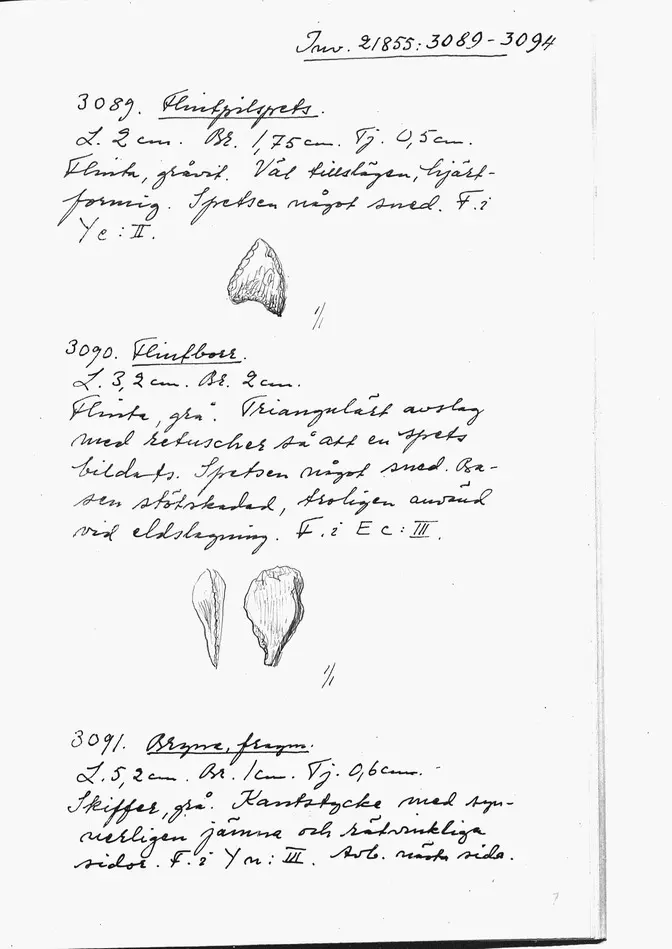 Inv. 21855:3089-3094
3089. Flintpilspets.
L. 2 cm. Br. 1,75 cm. Tj. 0,5 cm.
Flinta, gråvit. Väl tillslagen, hjärt-
formig. Spetsen något sned. F. i
Y c : II.
1/1
3090. Flintborr.
L. 3,2 cm. Br. 2 cm.
Flinta, grå. Triangulärt avslag
med retuscher så att en spets
bildats. Spetsen något sned. Ba-
sen stötskadad, troligen använd
vid eldslagning. F. i E c : III.
1/1
3091. Bryne, fragm.
L. 5,2 cm. Br. 1 cm. Tj. 0,6 cm.
Skiffer, grå. Kantstycke med syn-
nerligen jämna och rätvinkliga
sidor. F. i Y n : III. Avb. nästa sida.
7